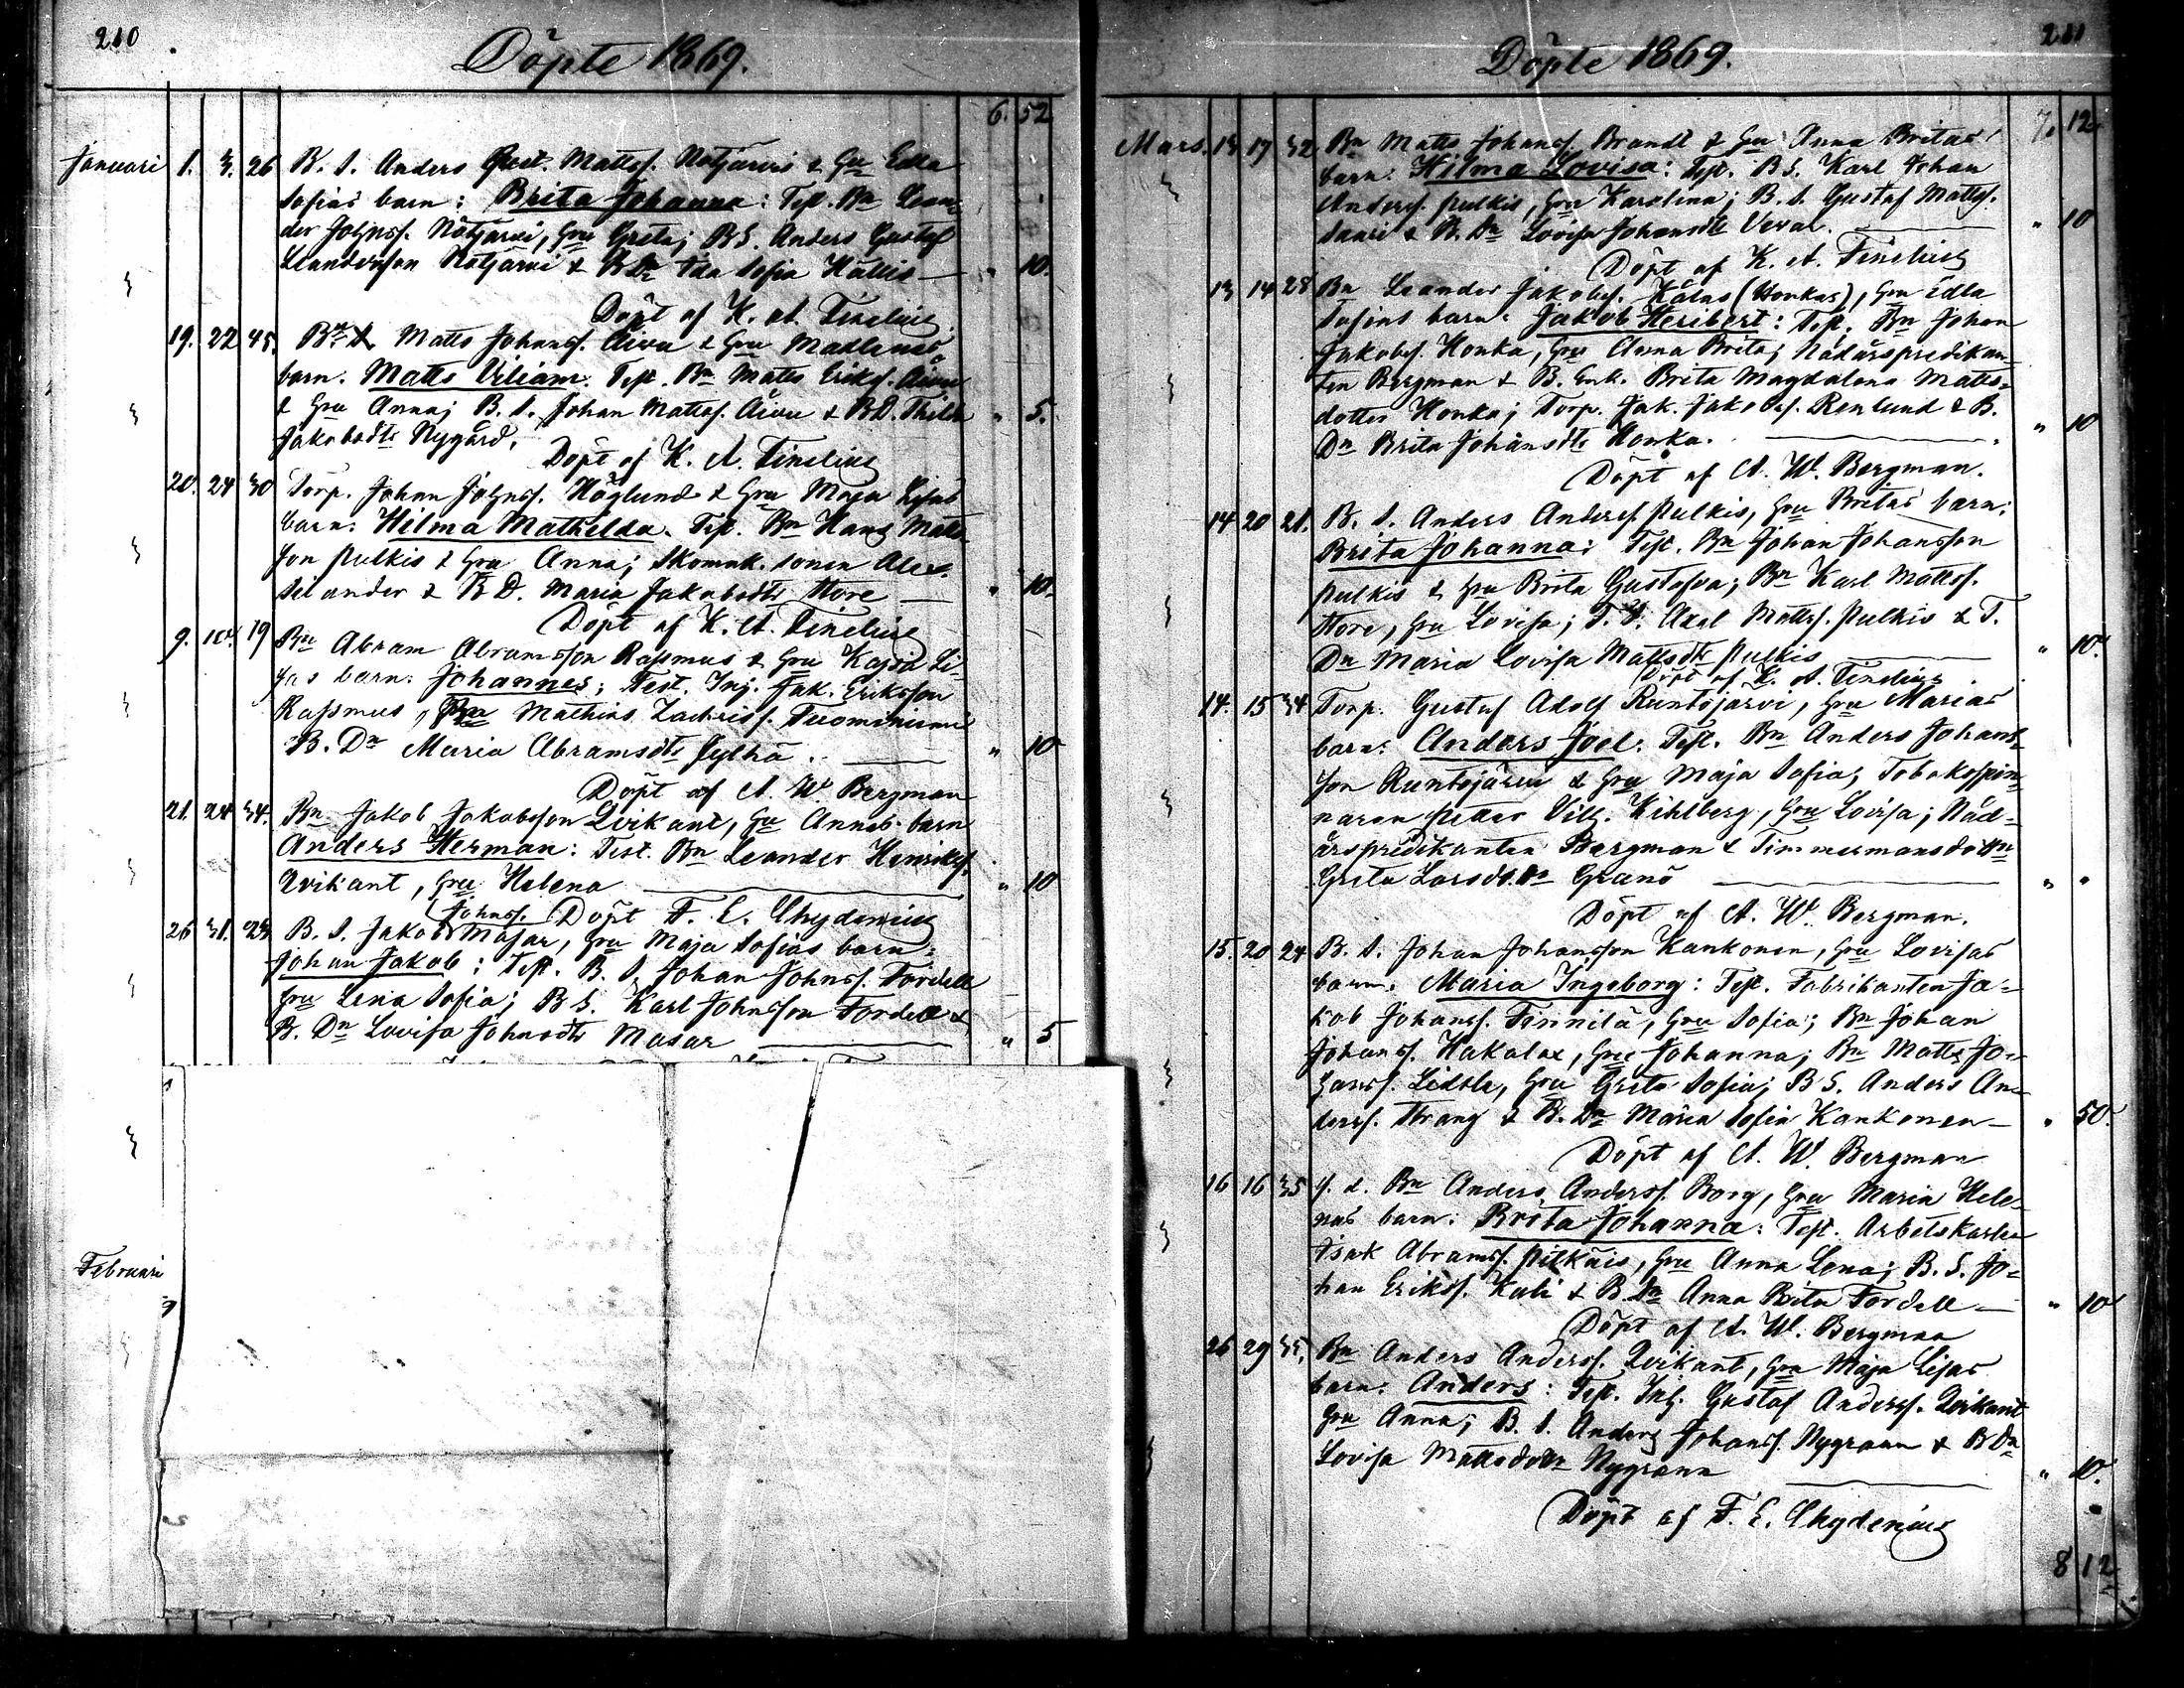 210
Döpte 1869.
6. 52
Januari 1. 3. 26 B. S. Anders Gust. Mattss. Nätjärvi & Hru Edla
Sofias barn: Brita Johanna: Test. Bn Lean-
der Johnss. Nätjärvi, Hru Greta; B S. Anders Gustaf
Leandersson Nätjärvi & B Dn Ida Sofia Källis — " 10.
Döpt af K. A. Finelius
19. 22 45. Bn Matts Johanss. Äivu & Hru Madlenas
barn. Matts Viliam. Test. Bn Matts Erikss. Äivu
& Hru Anna; B. S. Johan Mattss. Äivu & B D. Thilda " 5.
Jakobsdtr Nygård.
Döpt af K. A. Finelius
20. 24 30 Torp. Johan Johnss. Höglund & Hru Maja Lisas
barn. Hilma Mathilda. Test. Bn Hans Matts-
son Pulkis & Hru Anna; Skomak. sonen Alex.
Selander & B D. Maria Jakobsdtr Store — " 10.
Döpt af K. A. Finelius
9. 10. 19 Bn Abram Abramsson Rassmus & Hru Kajsa Li-
sas barn. Johannes; Test. Inj. Jak. Eriksson
Rassmus, Bn Mathias Zachriss. Tuominiemi
B. Dn Maria Abramsdtr Jylhä. — " 10
Döpt af A. W Bergman
21. 24 34. Bn Jakob Jakobsson Qvikant, Hru Annas barn
Anders Herman: Test. Bn Leander Henrikss.
Qvikant, Hru Helena — " 10
Döpt F. E. Chydenius
Johnss.
26 31. 23 B. S. Jakob Masar, Hru Maja Sofias barn:
Johan Jakob: Test. B. S. Johan Johnss. Fordell
Hru Lena Sofia; B S. Karl Johnsson Fordell &
B. Dn Lovisa Johnsdtr Masar — " 5
Februari
211
Döpte 1869.
7. 12.
Mars. 13 17 32 Bn Matts Johanss. Brandt & Hru Anna Britas
barn. Hilma Lovisa: Test. B S. Karl Johan
Anderss. Pulkis, Hru Karolina; B. S. Gustaf Mattss.
Saari & B. Dn Lovisa Johansdtr Veval. — " 10
Döpt af K. A. Finelius
13 14 28 Bn Leander Jakobss. Kälas (Honkas), Hru Edla
Sofias barn. Jakob Heribert: Test. Bn Johan
Jakobss. Honka, Hru Anna Brita; Nådårspredikan-
ten Bergman & B. Enk. Brita Magdalena Matts-
dotter Honka; Torp. Jak. Jakobss. Renlund & B.
Dn Brita Johansdtr Honka. — " 10
Döpt af A. W. Bergman.
14 20 21. B. S. Anders Anderss. Pulkis, Hru Britas barn:
Brita Johanna; Test. Bn Johan Johansson
Pulkis & Hru Brita Gustafva; Bn Karl Mattss.
Store, Hru Lovisa; T. S. Axel Mattss. Pulkis & T.
Dn Maria Lovisa Mattsdtr Pulkis — " 10.
Döpt af K. A. Finelius
14. 15 34 Torp. Gustaf Adolf Runtojärvi, Hru Marias
barn: Anders Joel: Test. Bn Anders Johans-
son Runtojärvi & Hru Maja Sofia; Tobaksspin-
naren Petter Vilh. Kihlberg, Hru Lovisa; Nåd-
årspredikanten Bergman & Timmermansdottrn
Greta Larsdtr Granö — " "
Döpt af A. W. Bergman.
15. 20 24 B. S. Johan Johansson Kankonen, Hru Lovisas
barn. Maria Ingeborg: Test. Fabrikanten Ja-
kob Johanss. Finnilä, Hru Sofia; Bn Johan
Johanss. Hakalax, Hru Johanna; Bn Matts Jo-
hanss. Lidsle, Hru Greta Sofia; B S. Anders An-
derss. Strang & B. Dn Maria Sofia Kankonen — " 50.
Döpt af A. W. Bergman
16 16 35 f. d. Bn Anders Anderss. Borg, Hru Maria Hele-
nas barn: Brita Johanna: Test. Arbetskarlen
Isak Abramss. Pitkäis, Hru Anna Lena; B. S. Jo-
han Erikss. Kali & B Dn Anna Brita Fordell — " 10
Döpt af A. W. Bergman
26 29 35. Bn Anders Anderss. Qvikant, Hru Maja Lisas
barn. Anders: Test. Inh. Gustaf Anderss. Qvikant
Hru Anna; B. S. Anders Johanss. Nygrann & B Dn
Lovisa Mattsdottr Nygrann — " 10.
Döpt af F. E. Chydenius
8 12